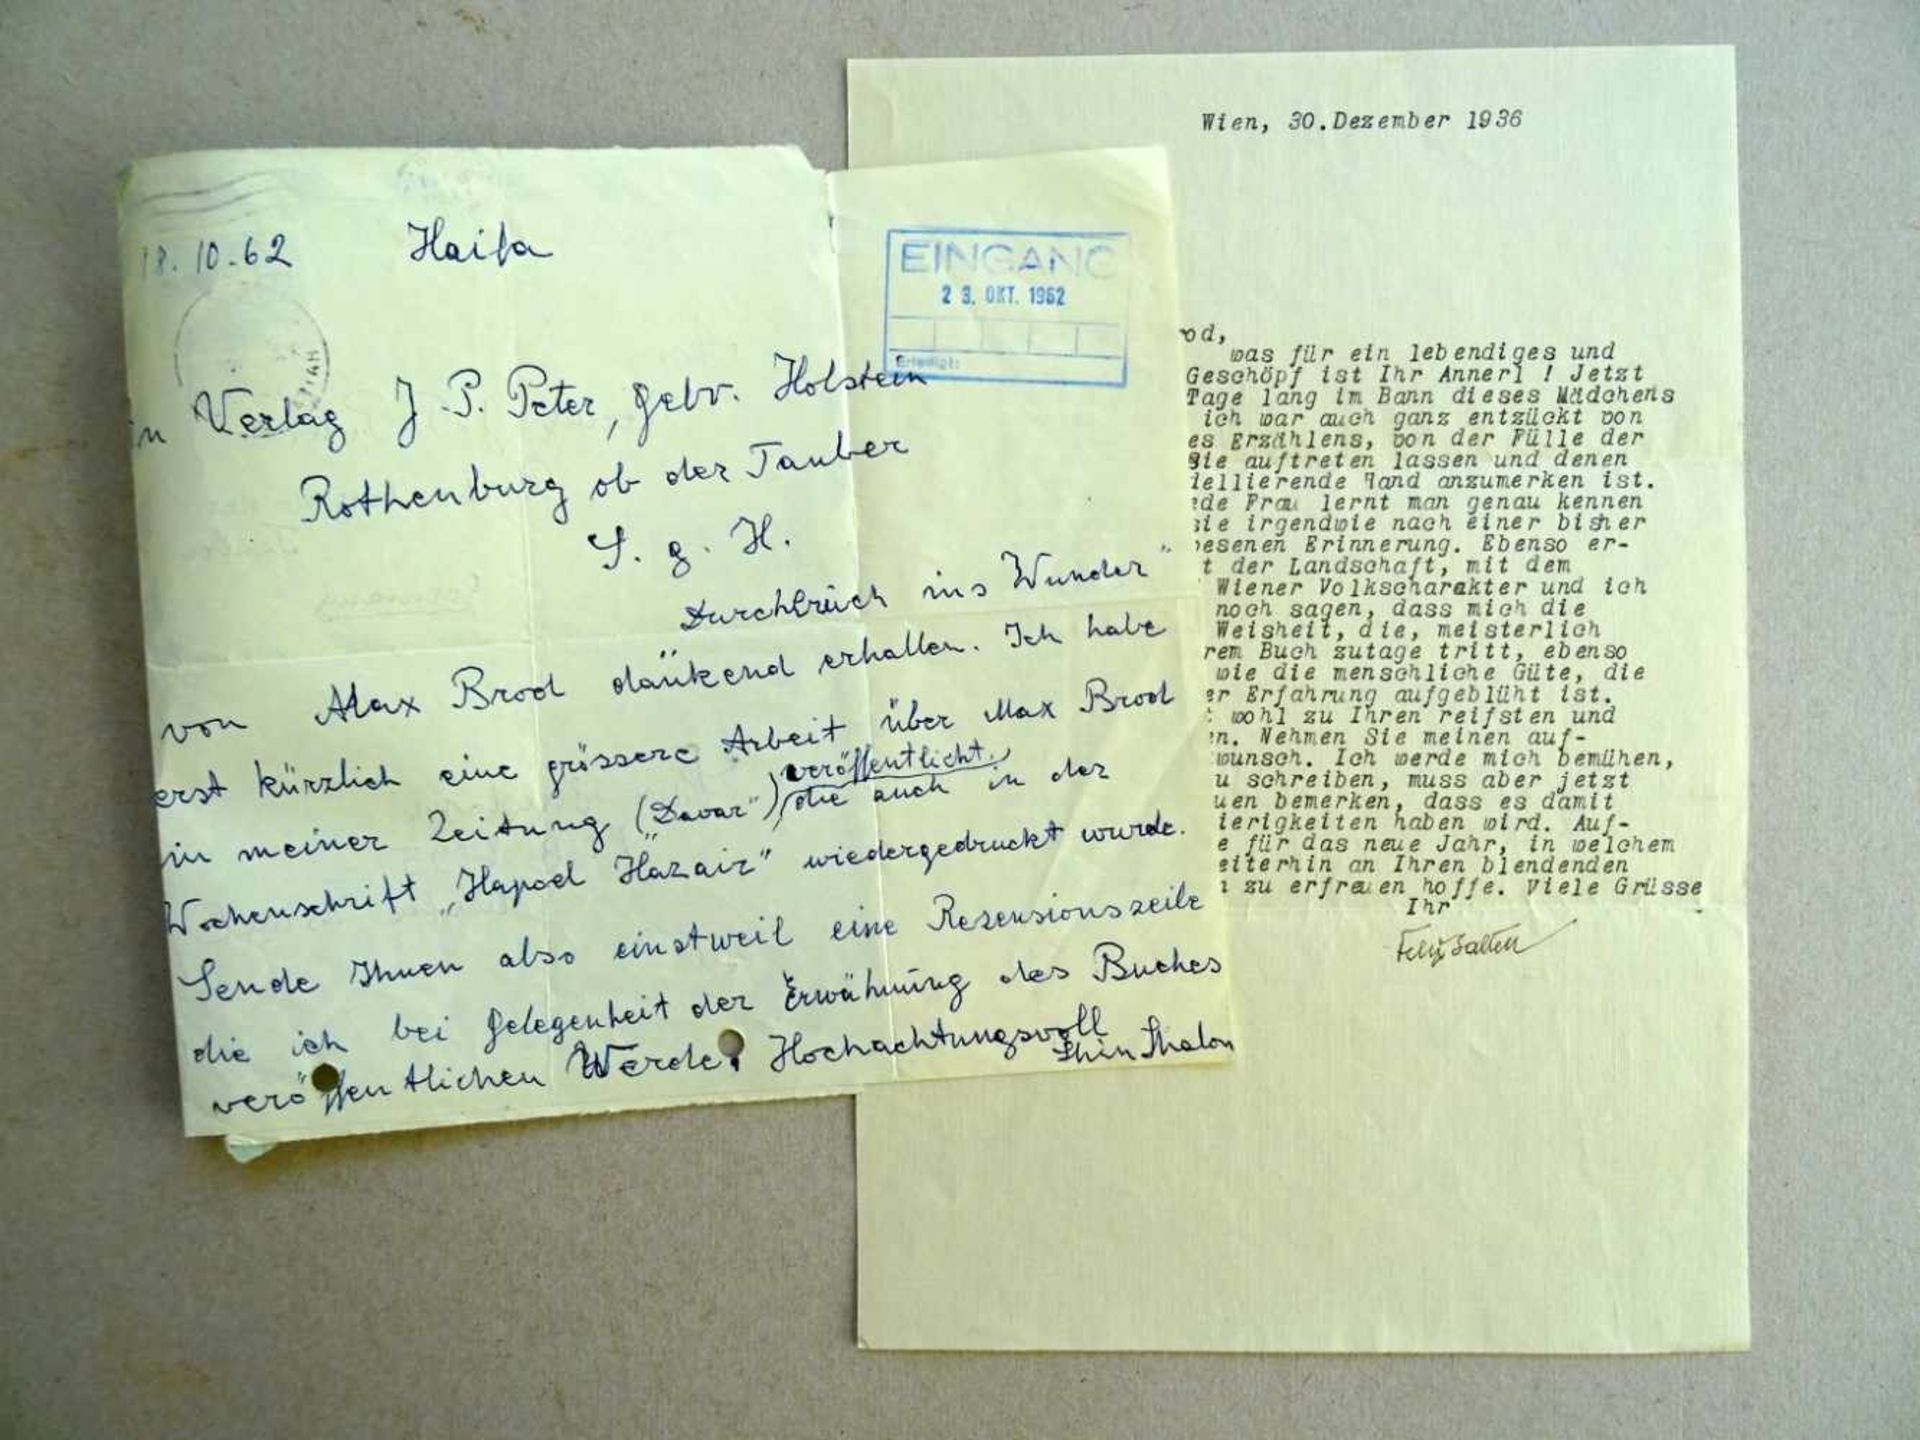 18.10.62 Haifa
EINGANG
23. OKT. 1962
Erledigt:
in Verlag J. P. Peter, Gebr. Holstein
Rothenburg ob der Tauber
S. g. H.
Durchbruch ins Wunder"
von Max Brod dankend erhalten. Ich habe
erst kürzlich eine grössere Arbeit über Max Brod
veröffentlicht.
in meiner Zeitung ("Davar") die auch in der
Wochenschrift „Hapoel Hazair" wiedergedruckt wurde.
Sende Ihnen also einstweil eine Rezensionszeile
die ich bei Gelegenheit der Erwähnung des Buches
veröffentlichen Werde. Hochachtungsvoll
Shin Shalom
Wien, 30.Dezember 1936
od,
was für ein lebendiges und
Geschöpf ist Ihr Annerl ! Jetzt
Tage lang im Bann dieses Mädchens
ich war auch ganz entzückt von
es Erzählens, von der Fülle der
Sie auftreten lassen und denen
dellierende Hand anzumerken ist.
ede Frau lernt man genau kennen
sie irgendwie nach einer bisher
wesenen Erinnerung. Ebenso er-
t der Landschaft, mit dem
Wiener Volkscharakter und ich
noch sagen, dass mich die
Weisheit, die, meisterlich
rem Buch zutage tritt, ebenso
wie die menschliche Güte, die
er Erfahrung aufgeblüht ist.
t wohl zu Ihren reifsten und
en. Nehmen Sie meinen auf-
wunsch. Ich werde mich bemühen,
u schreiben, muss aber jetzt
uen bemerken, dass es damit
ierigkeiten haben wird. Auf-
e für das neue Jahr, in welchem
eiterhin an Ihren blendenden
n zu erfreuen hoffe. Viele Grüsse
Ihr
Felix Salten